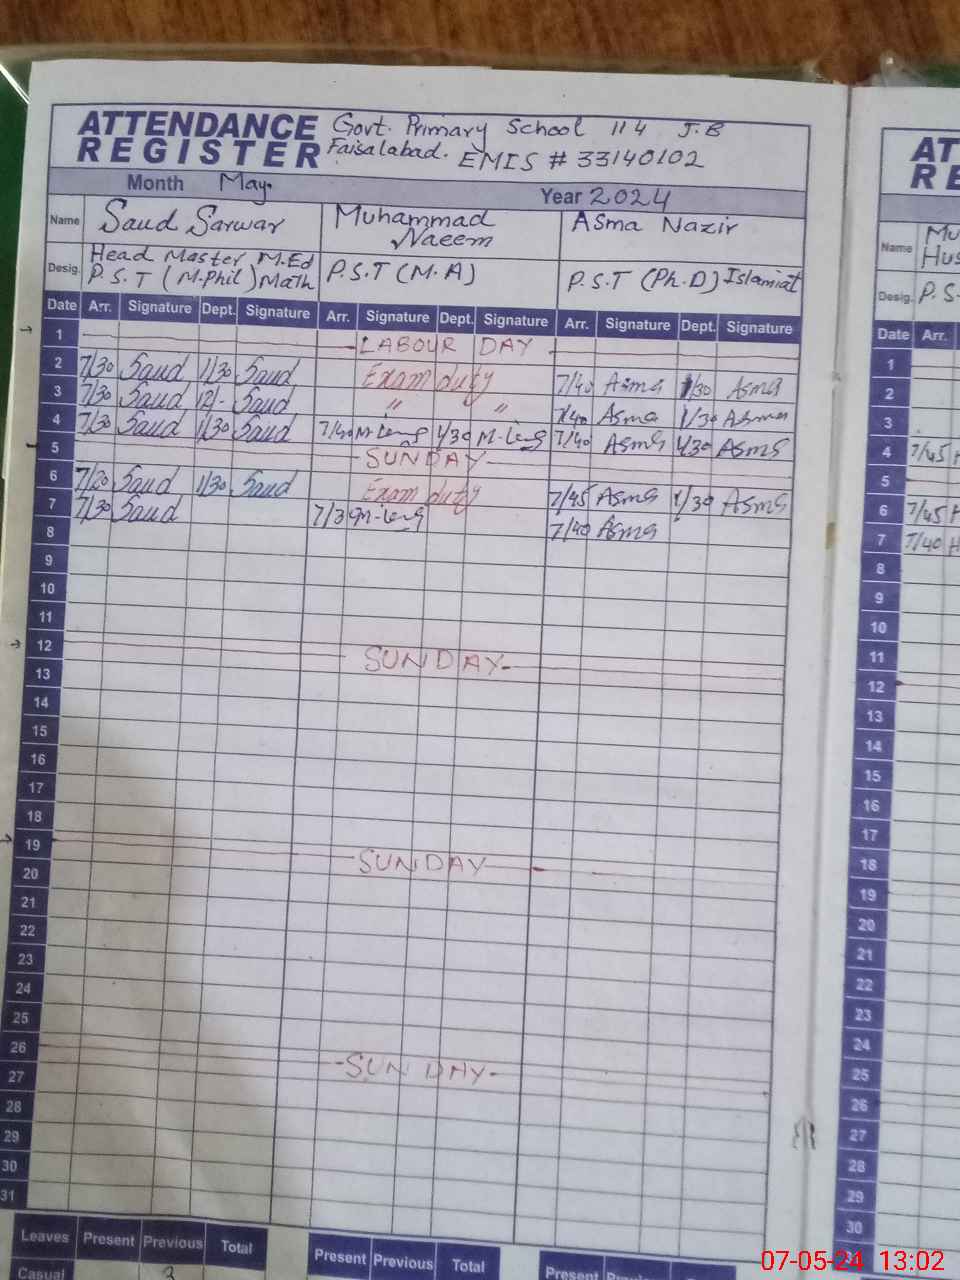 ATTENDANCE REGISTER Govt. Primary School 114 J.B
Faisalabad. EMIS # 33140102
Month May. Year 2024
Name Saud Sarwar Muhammad Naeem Asma Nazir
Desig. Head Master M.Ed P.S.T (M.Phil) Math P.S.T (M.A) P.S.T (Ph.D) Islamiat
Date Arr. Signature Dept. Signature Arr. Signature Dept. Signature Arr. Signature Dept. Signature
1 LABOUR DAY
2 7/30 Saud 1/30 Saud Exam duty 7/40 Asma 1/30 Asma
3 7/30 Saud 12/- Saud " " 7/40 Asma 1/30 Asma
4 7/30 Saud 1/30 Saud 7/40 1/30 7/40 Asma 1/30 Asma
5 SUNDAY
6 7/20 Saud 1/30 Saud Exam duty 7/45 Asma 1/30 Asma
7 7/30 Saud 7/3 7/40 Asma
8
9
10
11
12 SUNDAY
13
14
15
16
17
18
19 SUNDAY
20
21
22
23
24
25
26 SUNDAY
27
28
29
30
31
Leaves Present Previous Total Present Previous Total Present
Casual 3
AT
RE
Name Mu
Hus
Desig. P.S
Date Arr.
1
2
3
4 7/45 H
5
6 7/45 H
7 7/40 H
8
9
10
11
12
13
14
15
16
17
18
19
20
21
22
23
24
25
26
27
28
29
30
07-05-24 13:02